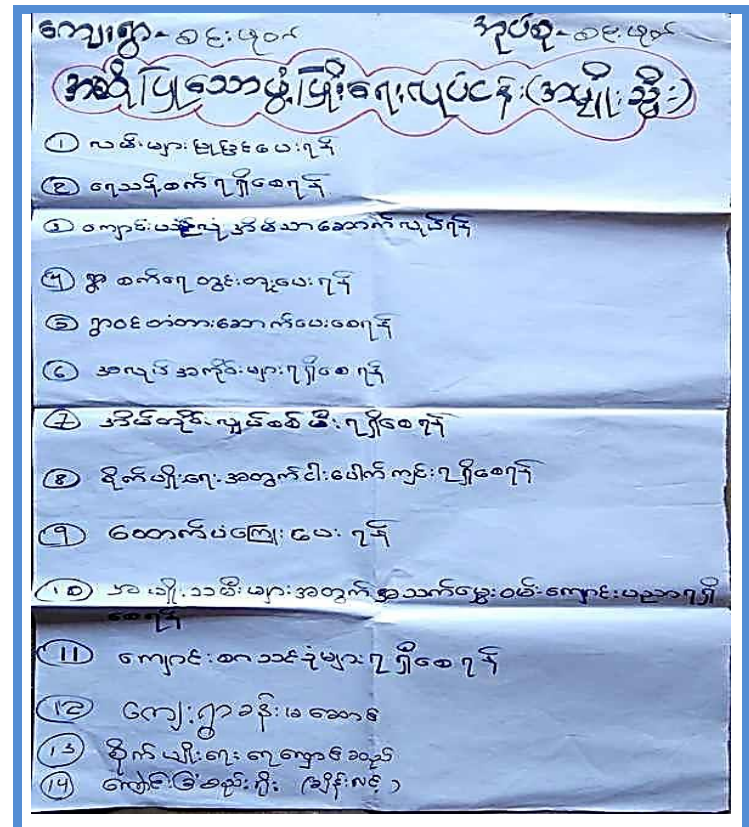 ကျေးရွာ-စဥ်းဟုတ် အုပ်စု-စဥ်းဟုတ်
အဆိုပြုသောဖွံ့ဖြိုးရေးလုပ်ငန်း(အမျိုးသမီး)
① လမ်းများပြုပြင်ပေးရန်
② ရေသန့်စက်ရရှိစေရန်
③ ကျောင်း အိမ်သာဆောက်လုပ်ရန်
④ ရွာ စက်ရေတွင်းတူးပေးရန်
⑤ ရွာဝင်တံတားဆောက်ပေးစေရန်
⑥ အလုပ်အကိုင်များရရှိစေရန်
⑦ အိမ်တိုင်းလျှပ်စစ်မီးရရှိစေရန်
⑧ စိုက်ပျိုးရေးအတွက်ငါးပေါက်ကျင်းရရှိစေရန်
⑨ ထောက်ပံ့ကြေးပေးရန်
⑩ အမျိုးသမီးများအတွက်အသက်မွေးဝမ်းကျောင်းပညာရရှိ
စေရန်
⑪ ကျောင်းစာသင်ခုံများရရှိစေရန်
⑫ ကျေးရွာခန်းမဆောင်
⑬ စိုက်ပျိုးရေး
⑭ ကျောင်းခြံစည်းရိုး